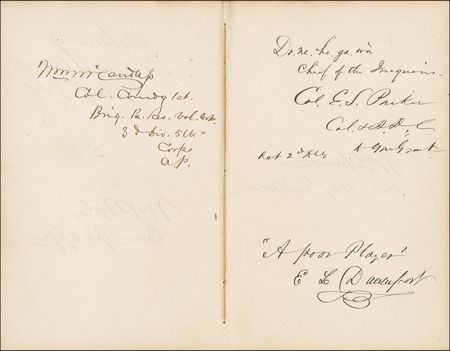 Wm McCandless
Col. Comdg 1st.
Brig. Pa. Res. Vol. Corps
3d Div. 5th
Corps
A.P.
Do. ne. ho. ga. wa
Chief of the Iroquois
Col E. S. Parker
Col. & A.D.C
to Gen Grant
Oct 2d 1864
"A poor Player"
E L Davenport